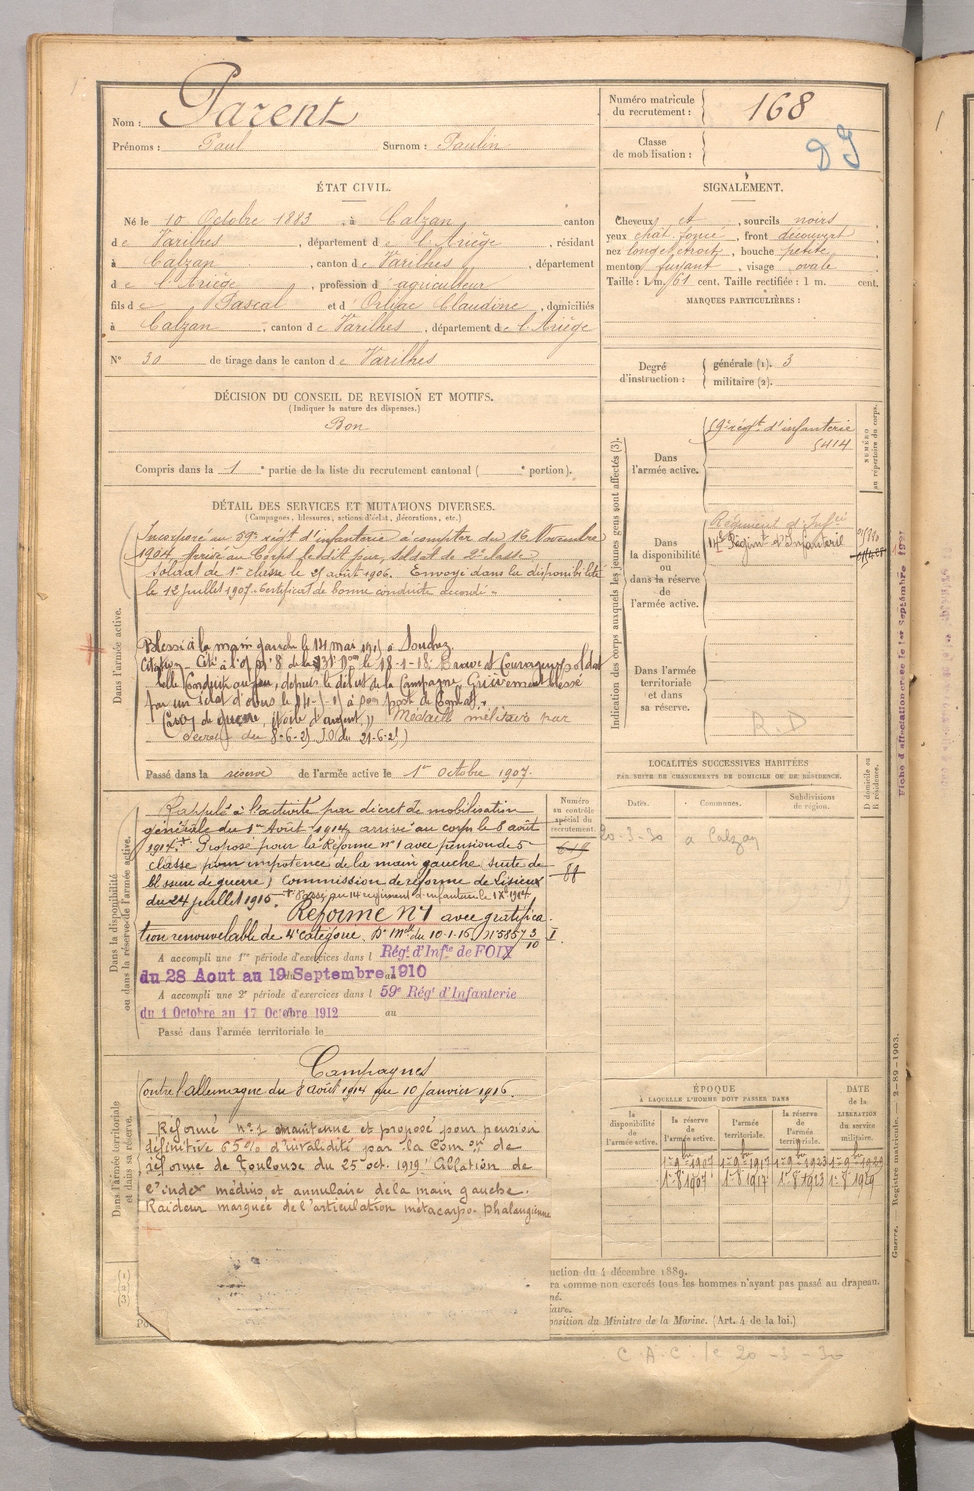 Nom : Parent
Prénoms : Paul Surnom : Paulin
Numéro matricule du recrutement : 168
Classe de mobilisation :
ÉTAT CIVIL.
Né le 10 Octobre 1883, à Calzan canton
de Varilhes, département de l'Ariège, résidant
à Calzan, canton de Varilhes, département
de l'Ariège, profession d'agriculteur
fils de Pascal et d' Claudine, domiciliés
à Calzan, canton de Varilhes, département de l'Ariège
N° 30 de tirage dans le canton de Varilhes
SIGNALEMENT.
Cheveux et, sourcils noirs
yeux chât. foncé, front découvert
nez long et étroit, bouche petite
menton fuyant, visage ovale
Taille : 1 m. 61 cent. Taille rectifiée : 1 m. cent.
MARQUES PARTICULIÈRES :
Degré d'instruction : générale (1). 3
militaire (2).
DÉCISION DU CONSEIL DE REVISION ET MOTIFS.
(Indiquer la nature des dispenses.)
Bon
Compris dans la 1e partie de la liste du recrutement cantonal ( e portion).
DÉTAIL DES SERVICES ET MUTATIONS DIVERSES.
(Campagnes, blessures, actions d'éclat, décorations, etc.)
Dans l'armée active.
Incorporé au 59e régt d'infanterie à compter du 16 Novembre
1904. Arrivé au Corps le dit jour, soldat de 2e classe
Soldat de 1re classe le 25 août 1906. Envoyé dans la disponibilité
le 12 juillet 1907. Certificat de bonne conduite accordé.
Blessé à la main gauche le 14 mai 1915 à Souchez
Citation - Cité à l'O/ n° 8 de la du 18-1-18. Brave et Courageux soldat
belle Conduite au feu, depuis le début de la Campagne, Grièvement blessé
par un éclat d'obus le à son poste de Combat.
Croix de guerre, étoile d'argent. Médaille militaire par
décret du 8-6-25 J.O. du 21-6-25)
Passé dans la réserve de l'armée active le 1er Octobre 1907.
Indication des corps auxquels les jeunes gens sont affectés (3).
NUMÉRO au répertoire du corps.
Dans l'armée active.
59e régt d'infanterie
5414
Dans la disponibilité ou dans la réserve de l'armée active.
Régiment d'Infie
14e Régint d'Infanterie
Dans l'armée territoriale et dans sa réserve.
R.D
LOCALITÉS SUCCESSIVES HABITÉES
PAR SUITE DE CHANGEMENTS DE DOMICILE OU DE RÉSIDENCE.
Dates. Communes. Subdivisions de région. D domicile ou R résidence.
20-3-30 à Calzan
Dans la disponibilité ou dans la réserve de l'armée active.
Numéro au contrôle spécial du recrutement.
88
Rappelé à l'activité par décret de mobilisation
générale du 1er Août 1914, arrivé au corps le 8 août
1914. Proposé pour la Réforme n° 1 avec pension de 5e
classe pour impotence de la main gauche suite de
blessure de guerre, Commission de réforme de Lisieux
du 24 juillet 1915. Passé au 14 régiment d'infanterie le
Réforme N°1 avec gratifica
tion renouvelable de 4e catégorie. Don Mlle du 10-1-16
A accompli une 1re période d'exercices dans l Régt d'Infie de FOIX
du 28 Aout au 19 Septembre 1910
A accompli une 2e période d'exercices dans l 59e Régt d'Infanterie
du 1 Octobre au 17 Octobre 1912 au
Passé dans l'armée territoriale le
Dans l'armée territoriale et dans sa réserve.
Campagnes
Contre l'allemagne du 8 août 1914 au 10 janvier 1916.
Réformé n° 1 maintenue et proposé pour pension
définitive 65% d'invalidité par la Comon de
réforme de Toulouse du 25 oct. 1919 "Ablation de
l'index médius et annulaire de la main gauche.
Raideur marquée de l'articulation métacarpo-phalangienne
ÉPOQUE
À LAQUELLE L'HOMME DOIT PASSER DANS
la disponibilité de l'armée active. la réserve de l'armée active. l'armée territoriale. la réserve de l'armée territoriale. DATE de la LIBÉRATION du service militaire.
1er 9bre 1907 1er 9bre 1917 1er 9bre 1923 1er 9bre 1929
uction du 4 décembre 1889.
ra comme non exercés tous les hommes n'ayant pas passé au drapeau.
né.
iaire.
position du Ministre de la Marine. (Art. 4 de la loi.)
C.A.C. le 20-3-30
Guerre. Registre matricule. — 2-89-1903.
Fiche d'affectation créée le 1er Septembre 1921